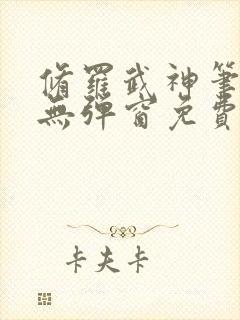 脩羅武神筆
無彈窗免費
卡夫卡